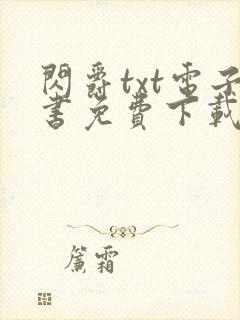 閃爵txt電子
書免費下載
簾霜